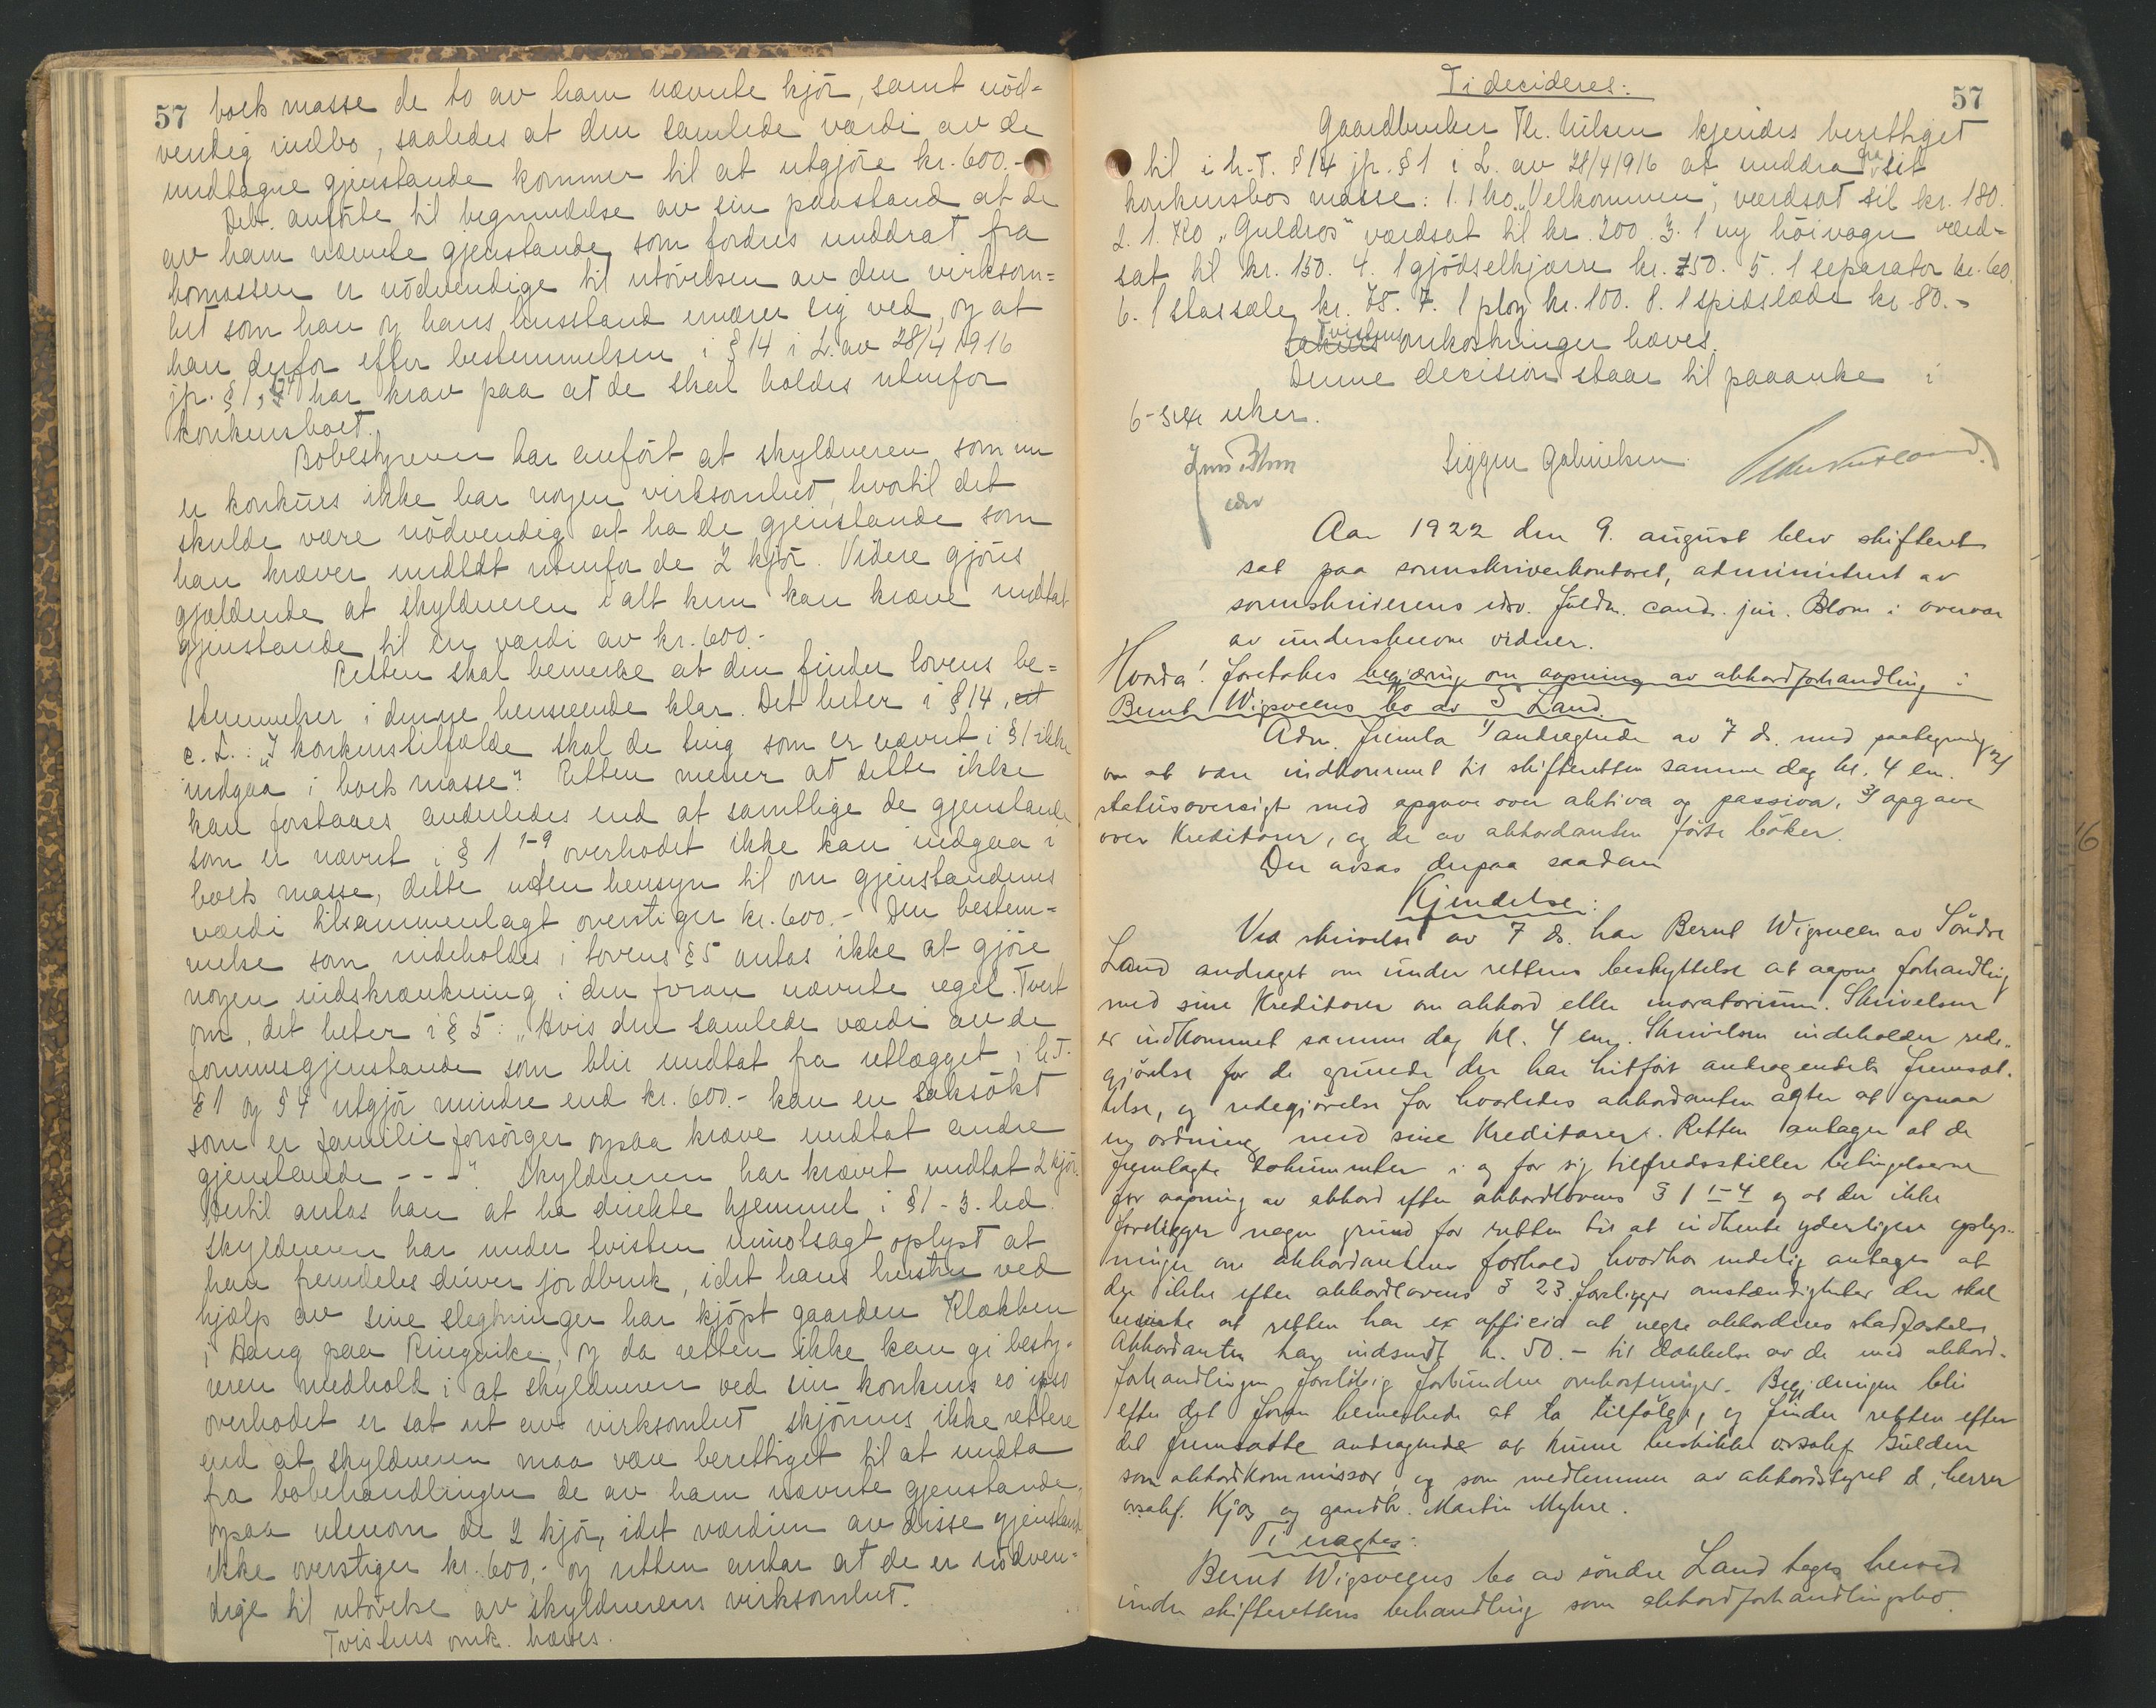 57
boets masse de to av ham nævnte kjör, samt nöd-
vendig indbo, saaledes at den samlede værdi av de
undtagne gjenstande kommer til at utgjöre kr. 600.-
Debt. anförte til begrundelse av sin paastand at de
av ham nævnte gjenstande, som fordres unddrat fra
bomassen er nödvendige til utövelsen av den virksom=
het som han og hans husstand ernærer sig ved, og at
han derfor efter bestemmelsen i § 14 i L. av 28/4 1916
jfr. § 1, har krav paa at de skal holdes utenfor
konkursboet.
Bobestyreren har anfört at skyldneren som nu
er konkurs ikke har nogen virksomhet, hvortil det
skulde være nödvendig at ha de gjenstande som
han kræver undtat utenfor de 2 kjör. Videre gjöres
gjældende at skyldneren i alt kun kan kræve undtat
gjenstande til en værdi av kr. 600.-
Retten skal bemerke at den finder lovens be=
stemmelser i denne henseende klar. Det heter i § 14, at
c. L.: "I konkurstilfælde skal de ting som er nævnt i § 1 ikke
indgaa i boets masse". Retten mener at dette ikke
kan forstaaes anderledes end at samtlige de gjenstande
som er nævnt i § 1 1-9 overhodet ikke kan indgaa i
boets masse, dette uten hensyn til om gjenstandenes
værdi tilsammenlagt overstiger kr. 600.- Den bestem=
melse som indeholdes i lovens § 5 antas ikke at gjöre
nogen indskrænkning i den foran nævnte regel. Tvert
om, det heter i § 5: "Hvis den samlede værdi av de
formuesgjenstande som blir undtat fra utlægget i h.t.
§ 1 og § 4 utgjör mindre end kr. 600.- kan en saksökt
som er familieforsörger ogsaa kræve undtat andre
gjenstande - - -". Skyldneren har krævet undtat 2 kjör.
Hertil antas han at ha direkte hjemmel i § 1 - 3. led.
Skyldneren har under tvisten uimotsagt oplyst at
han fremdeles driver jordbruk, idet hans hustru ved
hjælp av sine slegtninger har kjöpt gaarden Klækken
i Haug paa Ringerike, og da retten ikke kan gi besty-
reren medhold i at skyldneren ved sin konkurs eo ipso
overhodet er sat ut av virksomhet skjönnes ikke rettere
end at skyldneren maa være berettiget til at undta
fra bobehandlingen de av ham nævnte gjenstande,
ogsaa utenom de 2 kjör, idet værdien av disse gjenstande
ikke overstiger kr. 600,- og retten antar at de er nödven=
dige til utövelse av skyldnerens virksomhet.
Tvistens omk. hæves.
Ti decideres:
57
Gaardbruker Th. Nilsen kjendes berettiget
til i h.t. § 14 jfr. § 1 i L. av 28/4 1916 at unddra fra sit
konkursbos masse: 1. 1 ko "Velkommen", værdsat til kr. 180.
2. 1. Ko "Guldros" værdsat til kr. 200. 3. 1 ny höivogn værd=
sat til kr. 150. 4. 1 gjödselkjærre kr. 50. 5. 1 separator kr. 60.
6. 1 stassæle kr. 75. 7. 1 plog kr. 100. 8. 1 spidslæde kr. 80.-
Tvistens omkostninger hæves.
Denne decision staar til paaanke i
6-sex uker.
Jens Blom
edsv
Sigge Gabrielsen
Aar 1922 den 9. august blev skifteret
sat paa sorenskriverkontoret, administrert av
sorenskriverens edsv. fuldm. cand. jur. Blom i overvær
av underskrevne vidner.
Hvorda! foretokes begjæring om aapning av akkordforhandling i
Bernt Wigsveens bo av S Land.
Adm. fremla 1) andragende av 7 ds. med paategning
om at være indkommet til skifteretten samme dag kl. 4 em. 2)
statusoversigt med opgave over aktiva og passiva, 3) opgave
over Kreditorer, og de av akkordanten förte böker.
Der avsas derpaa saadan
Kjendelse:
Ved skrivelse av 7 ds. har Bernt Wigsveen av Söndre
Land andraget om under rettens beskyttelse at aapne forhandling
med sine Kreditorer om akkord eller moratorium. Skrivelsen
er indkommet samme dag kl. 4 em. Skrivelsen indeholder rede-
gjörelse for de grunde der har hitfört andragendets fremsæt-
telse, og redegjörelse for hvorledes akkordanten agter at opnaa
en ordning med sine Kreditorer. Retten antager at de
fremlagte dokumenter i og for sig tilfredsstiller betingelserne
for aapning av akkord efter akkordlovens § 1 1-4 og at der ikke
foreligger nogen grund for retten til at indhente yderligere oplys-
ninger om akkordantens forhold hvorhos endelig antages at
der ikke efter akkordlovens § 23 foreligger omstændigheter der skal
bevirke at retten har ex officio at negte akkordens stadfæstelse.
Akkordanten har indsendt kr. 50.- til dækkelse av de med akkord-
forhandlingen foreløbig forbundne omkostninger. Begjæringen blir
efter det foran bemerkede at ta tilfölge, og finder retten efter
det fremsatte andragende at kunne beskikke o.r.sakf. Gulden
som akkordkommissær, og som medlemmer av akkordstyret d, herrer
o.r.sakf. Kjos og gaardbr. Martin Myhre.
Ti eragtes:
Bernt Wigsveens bo av söndre Land tages herved
under skifterettens behandling som akkordforhandlingsbo.